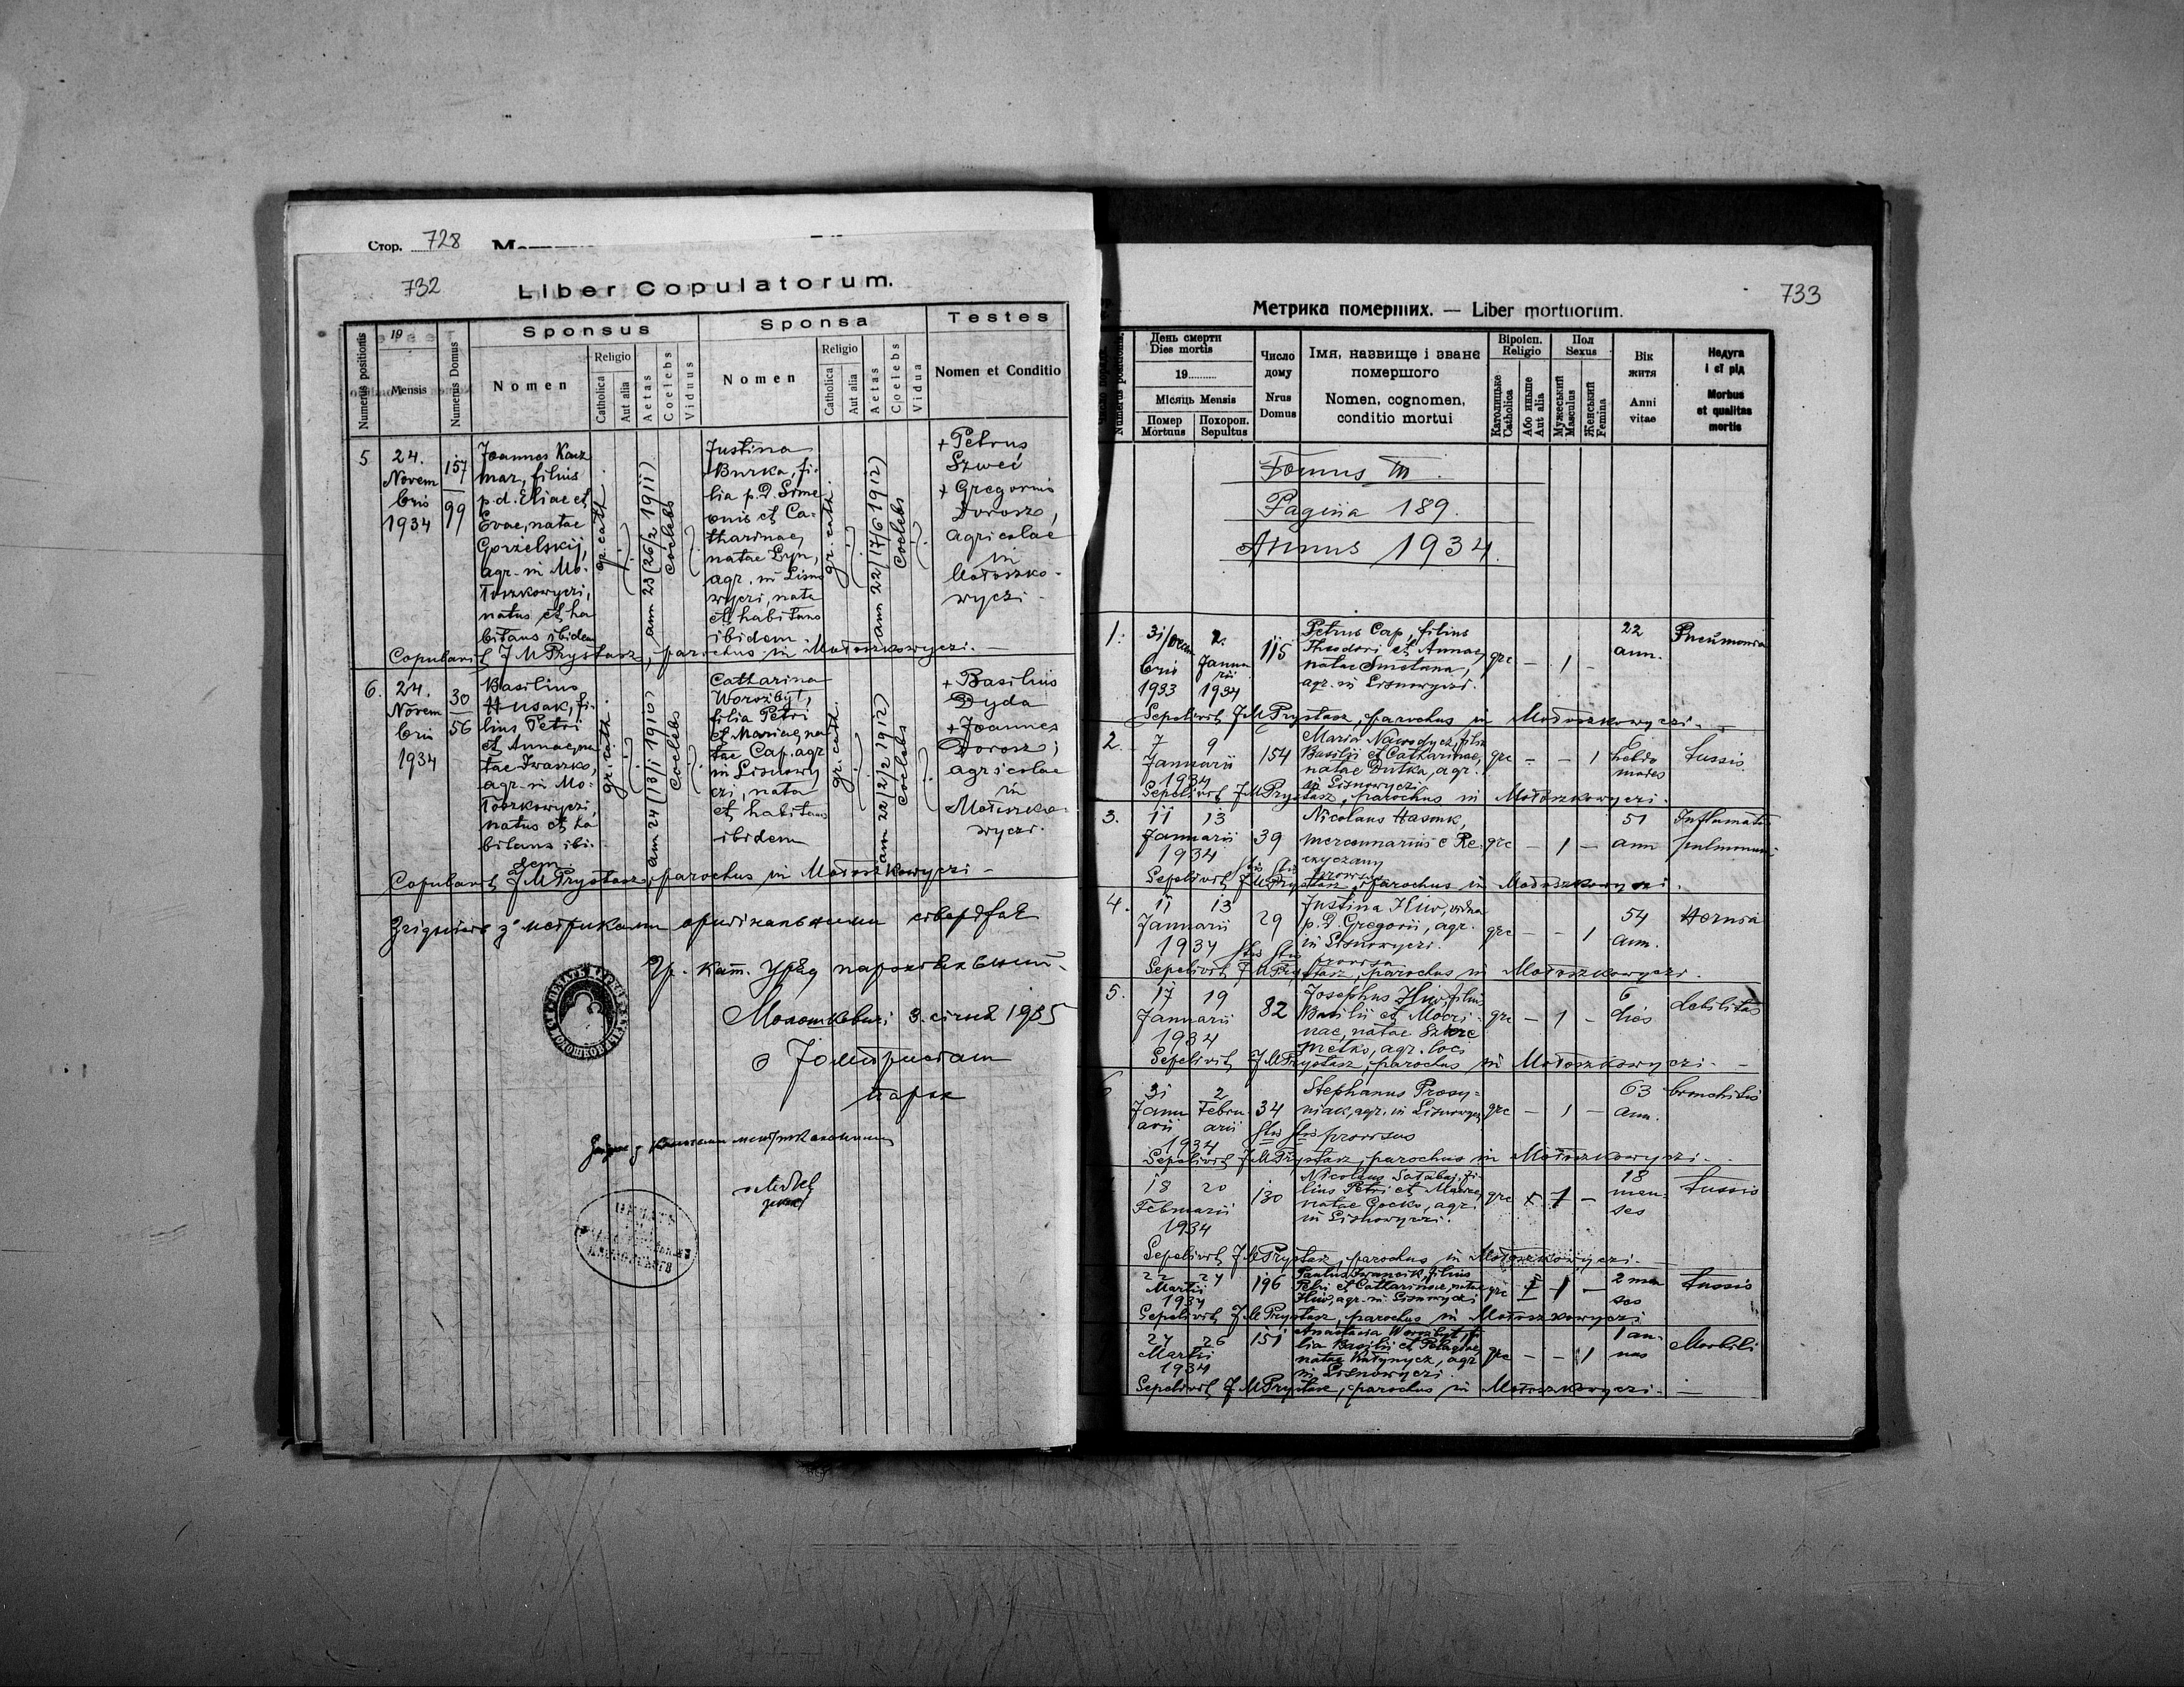 Стор. 728
732
Liber Copulatorum.
Numerus positionis
19
Mensis
Numerus Domus
Sponsus
Nomen
Religio
Catholica
Aut alia
Aetas
Coelebs
Viduus
Sponsa
Nomen
Religio
Catholica
Aut alia
Aetas
Coelebs
Vidua
Testes
Nomen et Conditio
5
24.
Novem
bris
1934
157
99
Joannes Kacz
mar, filius
p.d. Eliae et
Evae, natae
Gorzelskij,
agr. in Mo-
łoszkowyczi,
natus et ha
bitans ibidem
gr. cath.
ann 23 (26/2 1911)
Coelebs
Justina
Burka, fi-
lia p.d. Sime
onis et Ca-
tharinae,
natae Hryn,
agr. in Lisno
wyczi, nata
et habitans
ibidem.
gr. cath.
ann 22 (17/6 1912)
Coelebs
+ Petrus
Szweć
+ Gregorius
Dorosz,
agricolae
in
Mołoszko-
wyczi.
Copulavit J M Prystasz, parochus in Mołoszkowyczi. —
6.
24.
Novem
bris
1934
30
56
Basilius
Husak, fi-
lius Petri
et Annae, na
tae Iwaszko,
agr. in Mo-
łoszkowyczi,
natus et ha
bitans ibi-
dem.
gr. cath.
ann 24 (13/1 1910)
Coelebs
Catharina
Worożbyt,
filia Petri
et Mariae, na
tae Cap, agr
in Lisnowy
czi, nata
et habitans
ibidem
gr. cath.
ann 22 (2/2 1912)
Coelebs
+ Basilius
Dyda
+ Joannes
Dorosz,
agricolae
in
Mołoszko-
wyczi.
Copulavit J M Prystasz, parochus in Mołoszkowyczi —
Гр. кат. Уряд парохіяльний
Молошковичі 3. січня 1935
парох
733
Метрика померших. — Liber mortuorum.
Numerus positionis.
День смерти
Dies mortis
19
Місяць Mensis
Помер
Mortuus
Похорон.
Sepultus
Число
дому
Nrus
Domus
Імя, назвище і зване
помершого
Nomen, cognomen,
conditio mortui
Віроісп.
Religio
Католицьке
Catholica
Або инньше
Aut alia
Пол
Sexus
Мужеський
Masculus
Женьський
Femina
Вік
житя
Anni
vitae
Недуга
і єї рід
Morbus
et qualitas
mortis
Tomus III.
Pagina 189.
Annus 1934.
1.
31/Decem
bris
1933
2.
Janua
rii
1934
115
Petrus Cap, filius
Theodori et Annae,
natae Smetana,
agr. in Lisnowyczi.
grc — 1 —
22
ann.
Pneumonia
Sepelivit J M Prystasz, parochus in Mołoszkowyczi. —
2.
7 9
Januarii
1934
154
Maria Nawodycz, filia
Basilii et Catharinae,
natae Dutka, agr.
in Lisnowyczi
grc — — 1
hebdo
mades
tussis
Sepelivit J M Prystasz, parochus in Mołoszkowyczi.
3.
11 13
Januarii
1934
39
Nicolaus Hasiuk,
mercennarius e Re-
provisus
grc — 1 —
51
ann
Sepelivit J M Prystasz, parochus in Mołoszkowyczi.
4.
11 13
Januarii
1934
29
Justina Hiw, vidua
p.d. Gregorii, agr.
in Lisnowyczi.
provisa
grc — — 1
54
ann.
Hernia
Sepelivit J M Prystasz, parochus in Mołoszkowyczi.
5.
17 19
Januarii
1934
82
Josephus Hiw, filius
Basilii et Mari
nae, natae
metko, agr. loco
grc — 1 —
6
dies
debilitas
Sepelivit J M Prystasz, parochus in Mołoszkowyczi. —
6
31
Janu
arii
2
Febru
arii
1934
34
Stephanus Procy-
niak, agr. in Lisnowyczi
provisus
grc — 1 —
63
ann.
bronchitis
Sepelivit J M Prystasz, parochus in Mołoszkowyczi. —
18 20
Februarii
1934
130
Nicolaus Sałabaj, fi-
lius Petri et Mariae,
natae Gocko, agr.
in Lisnowyczi.
grc
1 —
18
men-
ses
tussis
Sepelivit J M Prystasz, parochus in Mołoszkowyczi. —
22 24
Martii
1934
196
Paulus Iwancik, filius
Petri et Catharinae, natae
Hiw, agr. in Lisnowyczi
grc
1 —
2 men
ses
tussis
Sepelivit J M Prystasz, parochus in Mołoszkowyczi
24 26
Martii
1934
151
Anastasia Worożbyt, fi
lia Basilii et Pelagiae,
natae Kałynycz, agr
in Lisnowyczi.
grc — — 1
1 an-
nus
Morbili
Sepelivit J M Prystasz, parochus in Mołoszkowyczi. —